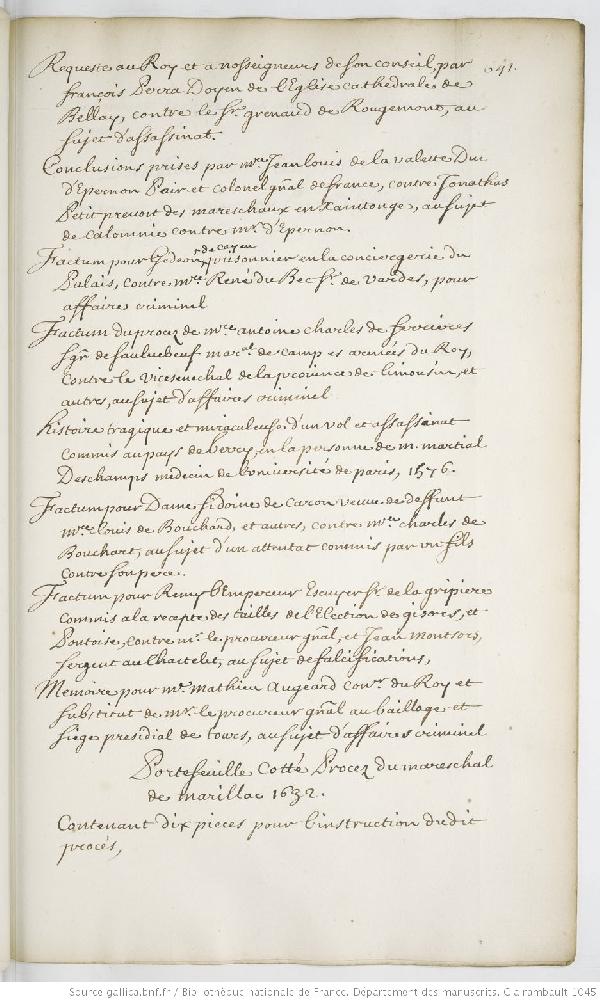 641.
Requeste au Roy et a nosseigneurs de son conseil, par
françois Perra Doyen de l'Eglise cathedrale de
Bellay, contre le Sr. grenaud de Rougemont, au
sujet d'assassinat.
Conclusions prises par mre Jean louis de la valette Duc
d'Epernon Pair et colonel gñal de france, contre Jonathas
Petit prevost des mareschaux en Xaintonge, au sujet
de calomnie contre mr. d'Epernon.
Factum pour Gedeon prisonnier en la conciergerie du
Palais, contre mre. René du Bec Sr. de Vardes, pour
affaire criminel
Factum du procez de mre antoine charles de ferrieres
sgr de sauluebeuf maral. de camp es armées du Roy,
contre le Vicesenechal de la province de limousin, et
autres, au sujet d'affaires criminel
histoire tragique et miraculeuse d'un vol et assassinat
commis au pays de berry, en la personne de m. martial
Deschamps medecin de l'université de paris, 1576.
Factum pour Dame fidoine de Caron veuve de deffunt
mre. louis de Bouchard, et autres, contre mre charles de
Bouchart, au sujet d'un attentat commis par un fils
contre son pere.
Factum pour Remy l'Empereur Escuyer Sr. de la gripiere
commis a la recepte des tailles de l'Election de gisors, et
Pontoise, contre mr. le procureur gñal, et Jean Montsors,
sergent au Chastelet, au sujet de falcifications,
Memoire pour mr. mathieu Augeard conser. du Roy et
substitut de mr. le procureur gñal au baillage et
siege presidial de tours, au sujet d'affaires criminel
Portefeuille Cotté Procez du mareschal
de marillac 1632.
Contenant dix pieces pour l'instruction dudit
procés,
Source gallica.bnf.fr / Bibliothèque nationale de France. Département des manuscrits. Clairambault 1045